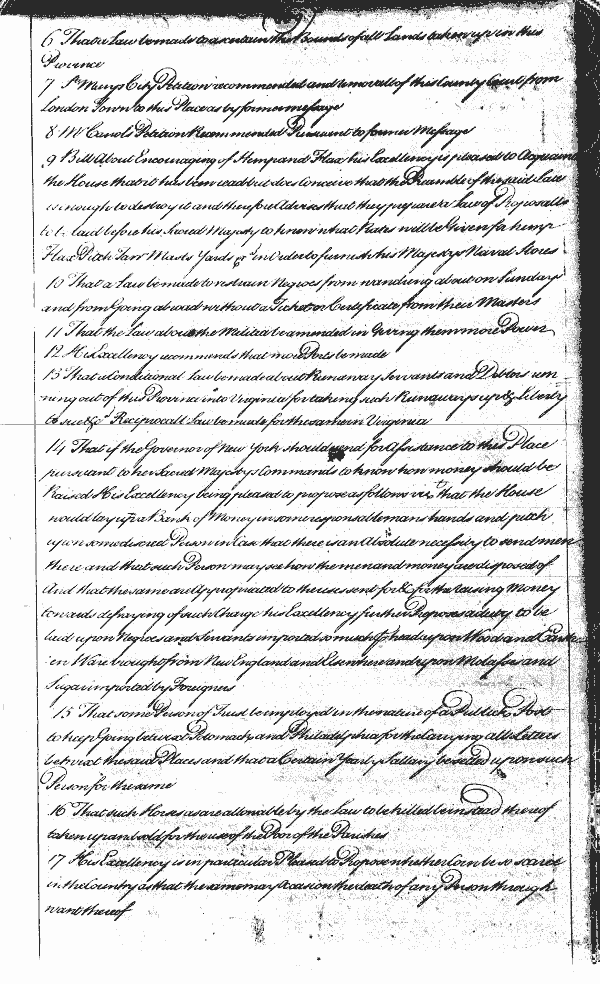 6 That a Law be made to ascertain the Bounds of all Lands taken up in this
Province
7 St Marys City Petition recommended and removall of this County Court from
London Town to this Place as by former message
8 Mr Carrols Petition Recommended Pursuant to former Message
9 Bill About Encouraging of Hemp and Flax his Excellency is pleased to Acquaint
the House that it has been read but does Conceive that the Preamble of the said Law
is enough to destroy it and therefore Advises that they prepare a Law of Proposalls
to be laid before his Sacred Majesty to know what Rates will be Given for hemp
Flax Pitch Tarr Masts Yards &c in Order to furnish his Majestys Naval Stores
10 That a Law be made to restrain Negroes from wandring about on Sundays
and from Going abroad without a Ticket or Certificate from their Masters
11 That the Law about the Militia be amended in Giving them more Power
12 His Excellency recommends that more Ports be made
13 That a Conditional Law be made about Runaway Servants and Debtors run
ning out of this Province into Virginia for taking such Runaways up & Liberty
to sue &c a Reciprocall Law be made for the same in Virginia
14 That if the Governor of New York should send for Assistance to this Place
pursuant to her Sacred Majestys Commands to know how money should be
Raised His Excellency being pleased to propose as follows vizt that the House
would lay up a Bank of Money in some responsable mans hands and pitch
upon some discreet Person in Case that there is an Absolute necessity to send men
there and that such Person may see how the men and money are disposed of
And that the same are appropriated to the uses sent for &c for the raising Money
towards defraying of such Charge his Excellency further Proposes a duty to be
laid upon Negroes and Servants imported so much p head upon Wood and Earth
en Ware brought from New England and Elsewhere and upon Molasses and
Sugar imported by Foreigners
15 That some Person of Trust be employed in the nature of a Publick Post
to keep Going betwixt Potomack and Philadelphia for the Carrying all Letters
betwixt the said Places and that a Certain Yearly Sallary be settled upon such
Person for the same
16 That such Horses as are allowable by the Law to be killed be instead thereof
taken up and sold for the use of the Poor of the Parishes
17 His Excellency is in particular Pleased to Propose whether Corn be so scarce
in the Country as that the same may occasion the death of any Person through
want thereof